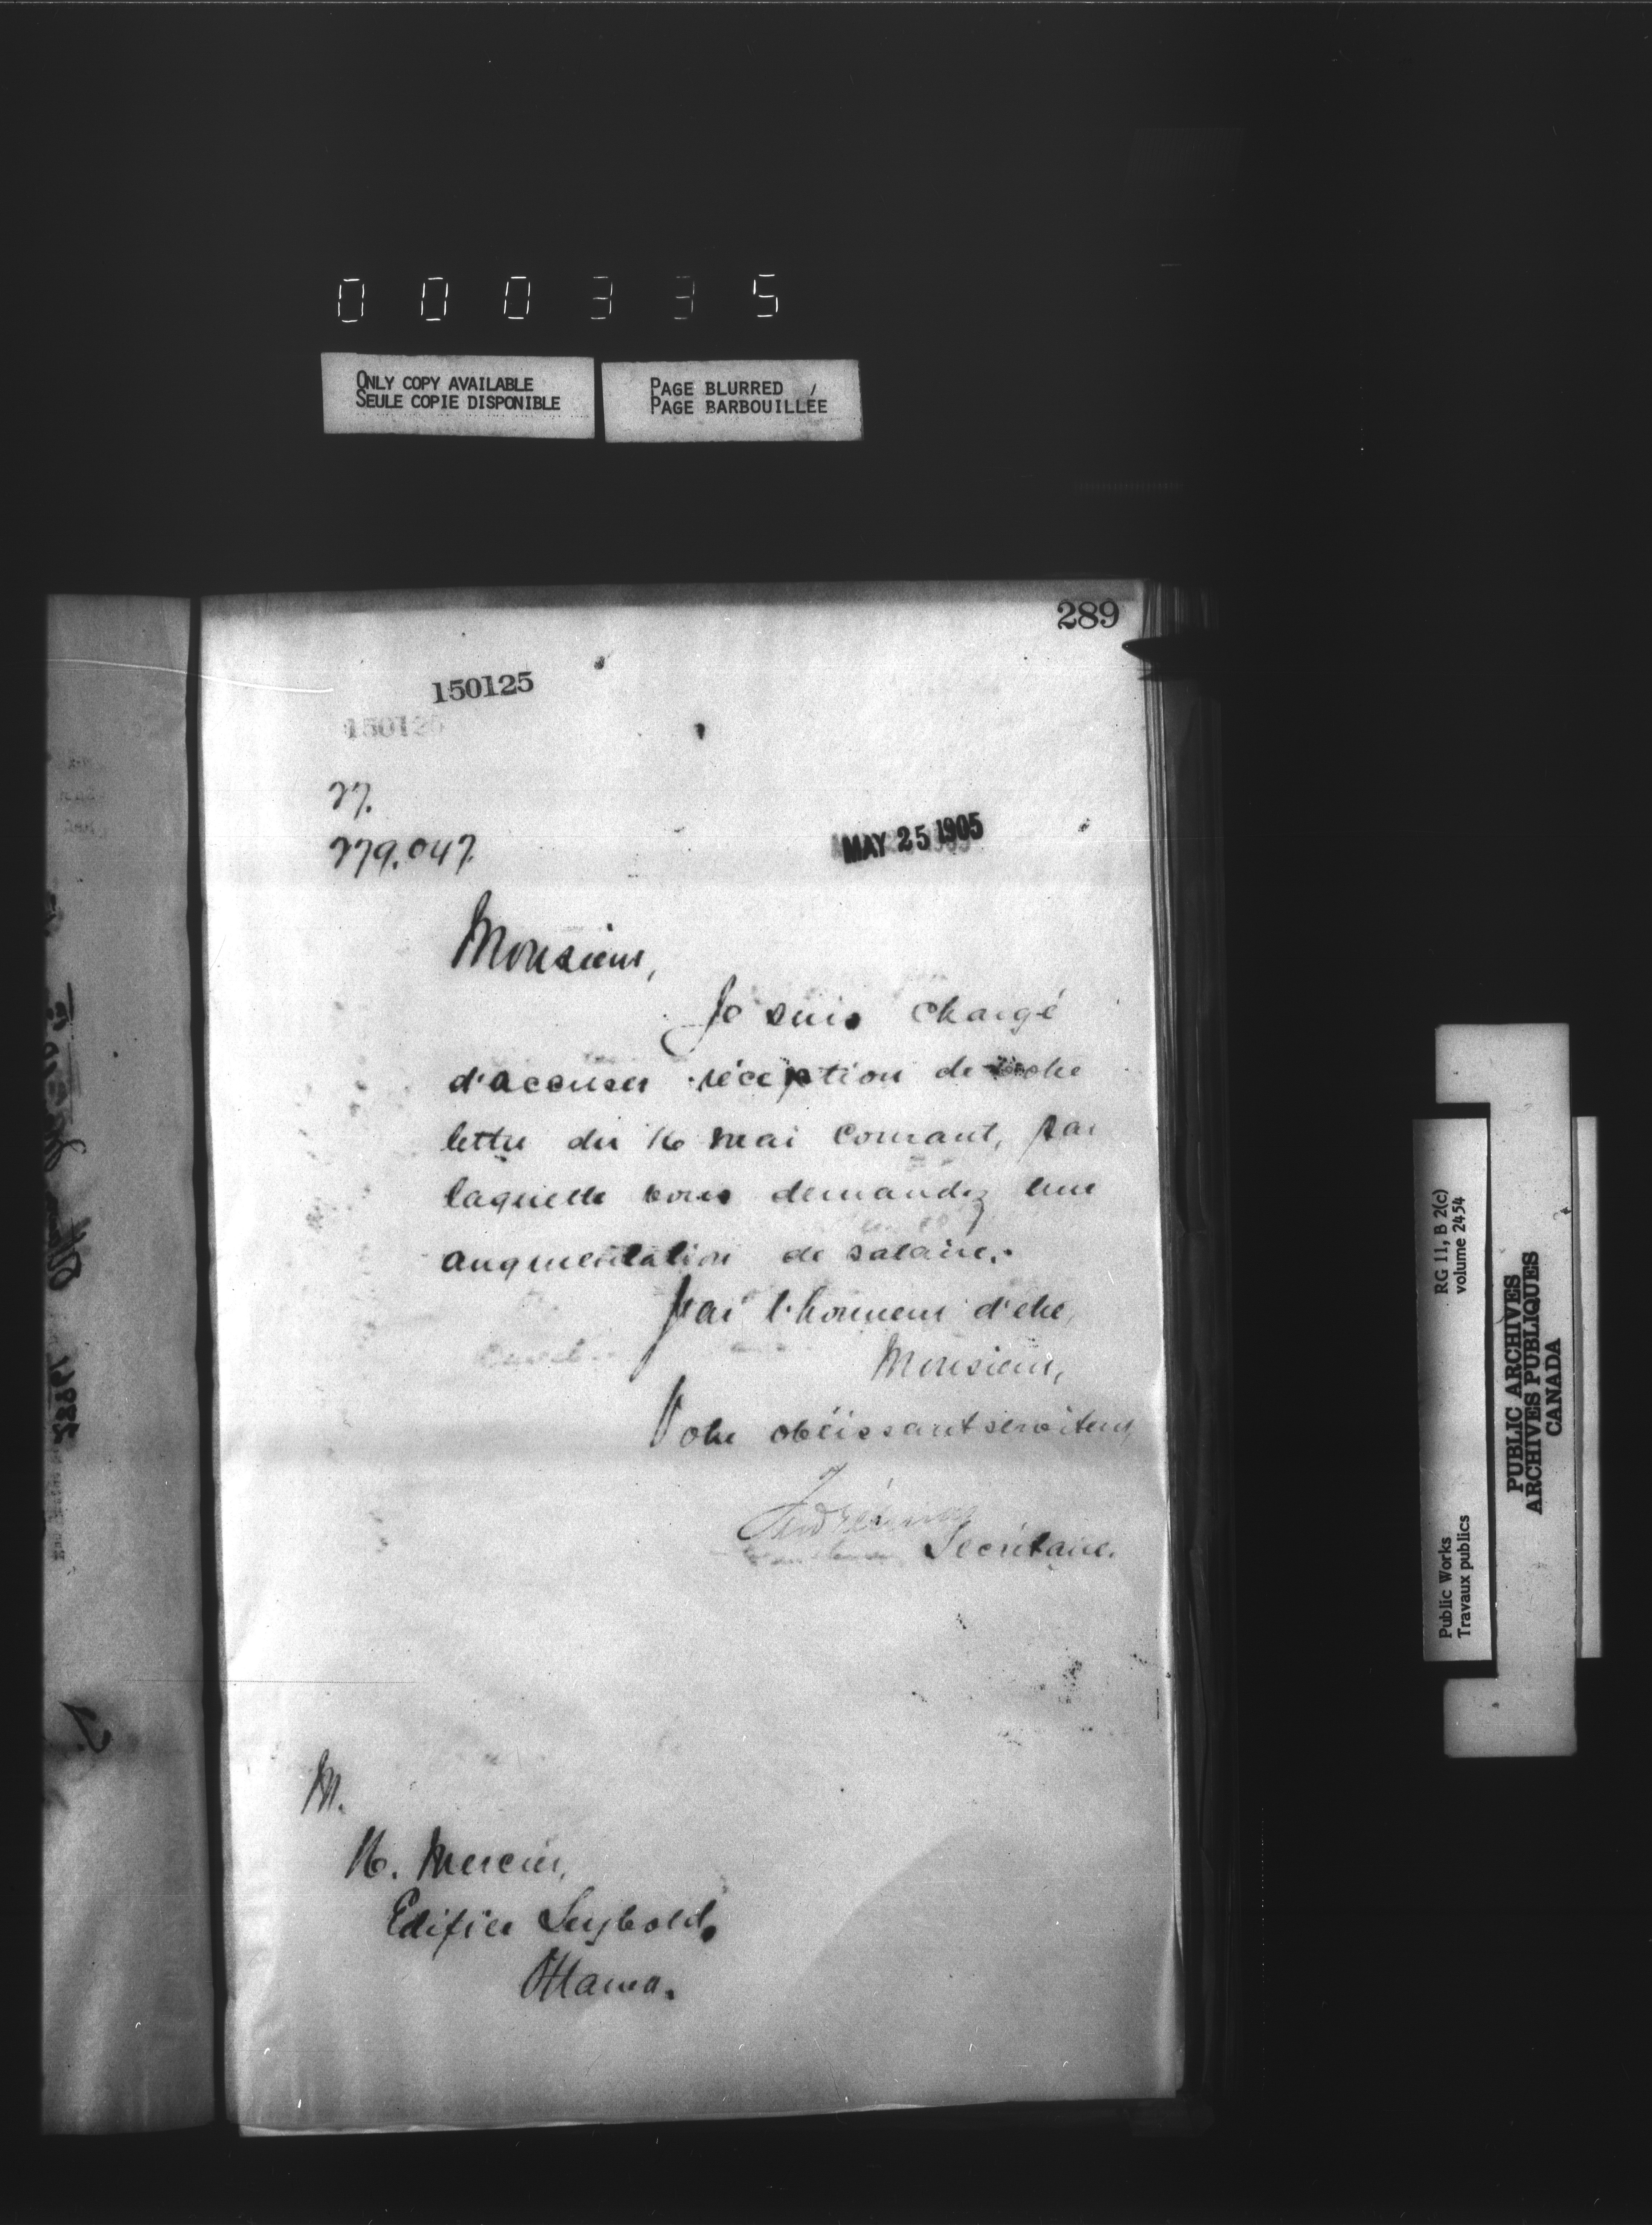 000335
ONLY COPY AVAILABLE
SEULE COPIE DISPONIBLE
PAGE BLURRED
PAGE BARBOUILLÉE
289
150125
150125
27.
279.047.
MAY 25 1905
Monsieur,
Je suis chargé
d'accuser réception de votre
lettre du 16 mai courant, par
laquelle vous demandez une
augmentation de salaire.
J'ai l'honneur d'être,
Monsieur,
Votre obéissant serviteur,
Secrétaire.
M.
Mercier,
Edifice Seybold,
Ottawa.
RG 11, B 2(c)
volume 2454
Public Works
Travaux publics
PUBLIC ARCHIVES
ARCHIVES PUBLIQUES
CANADA